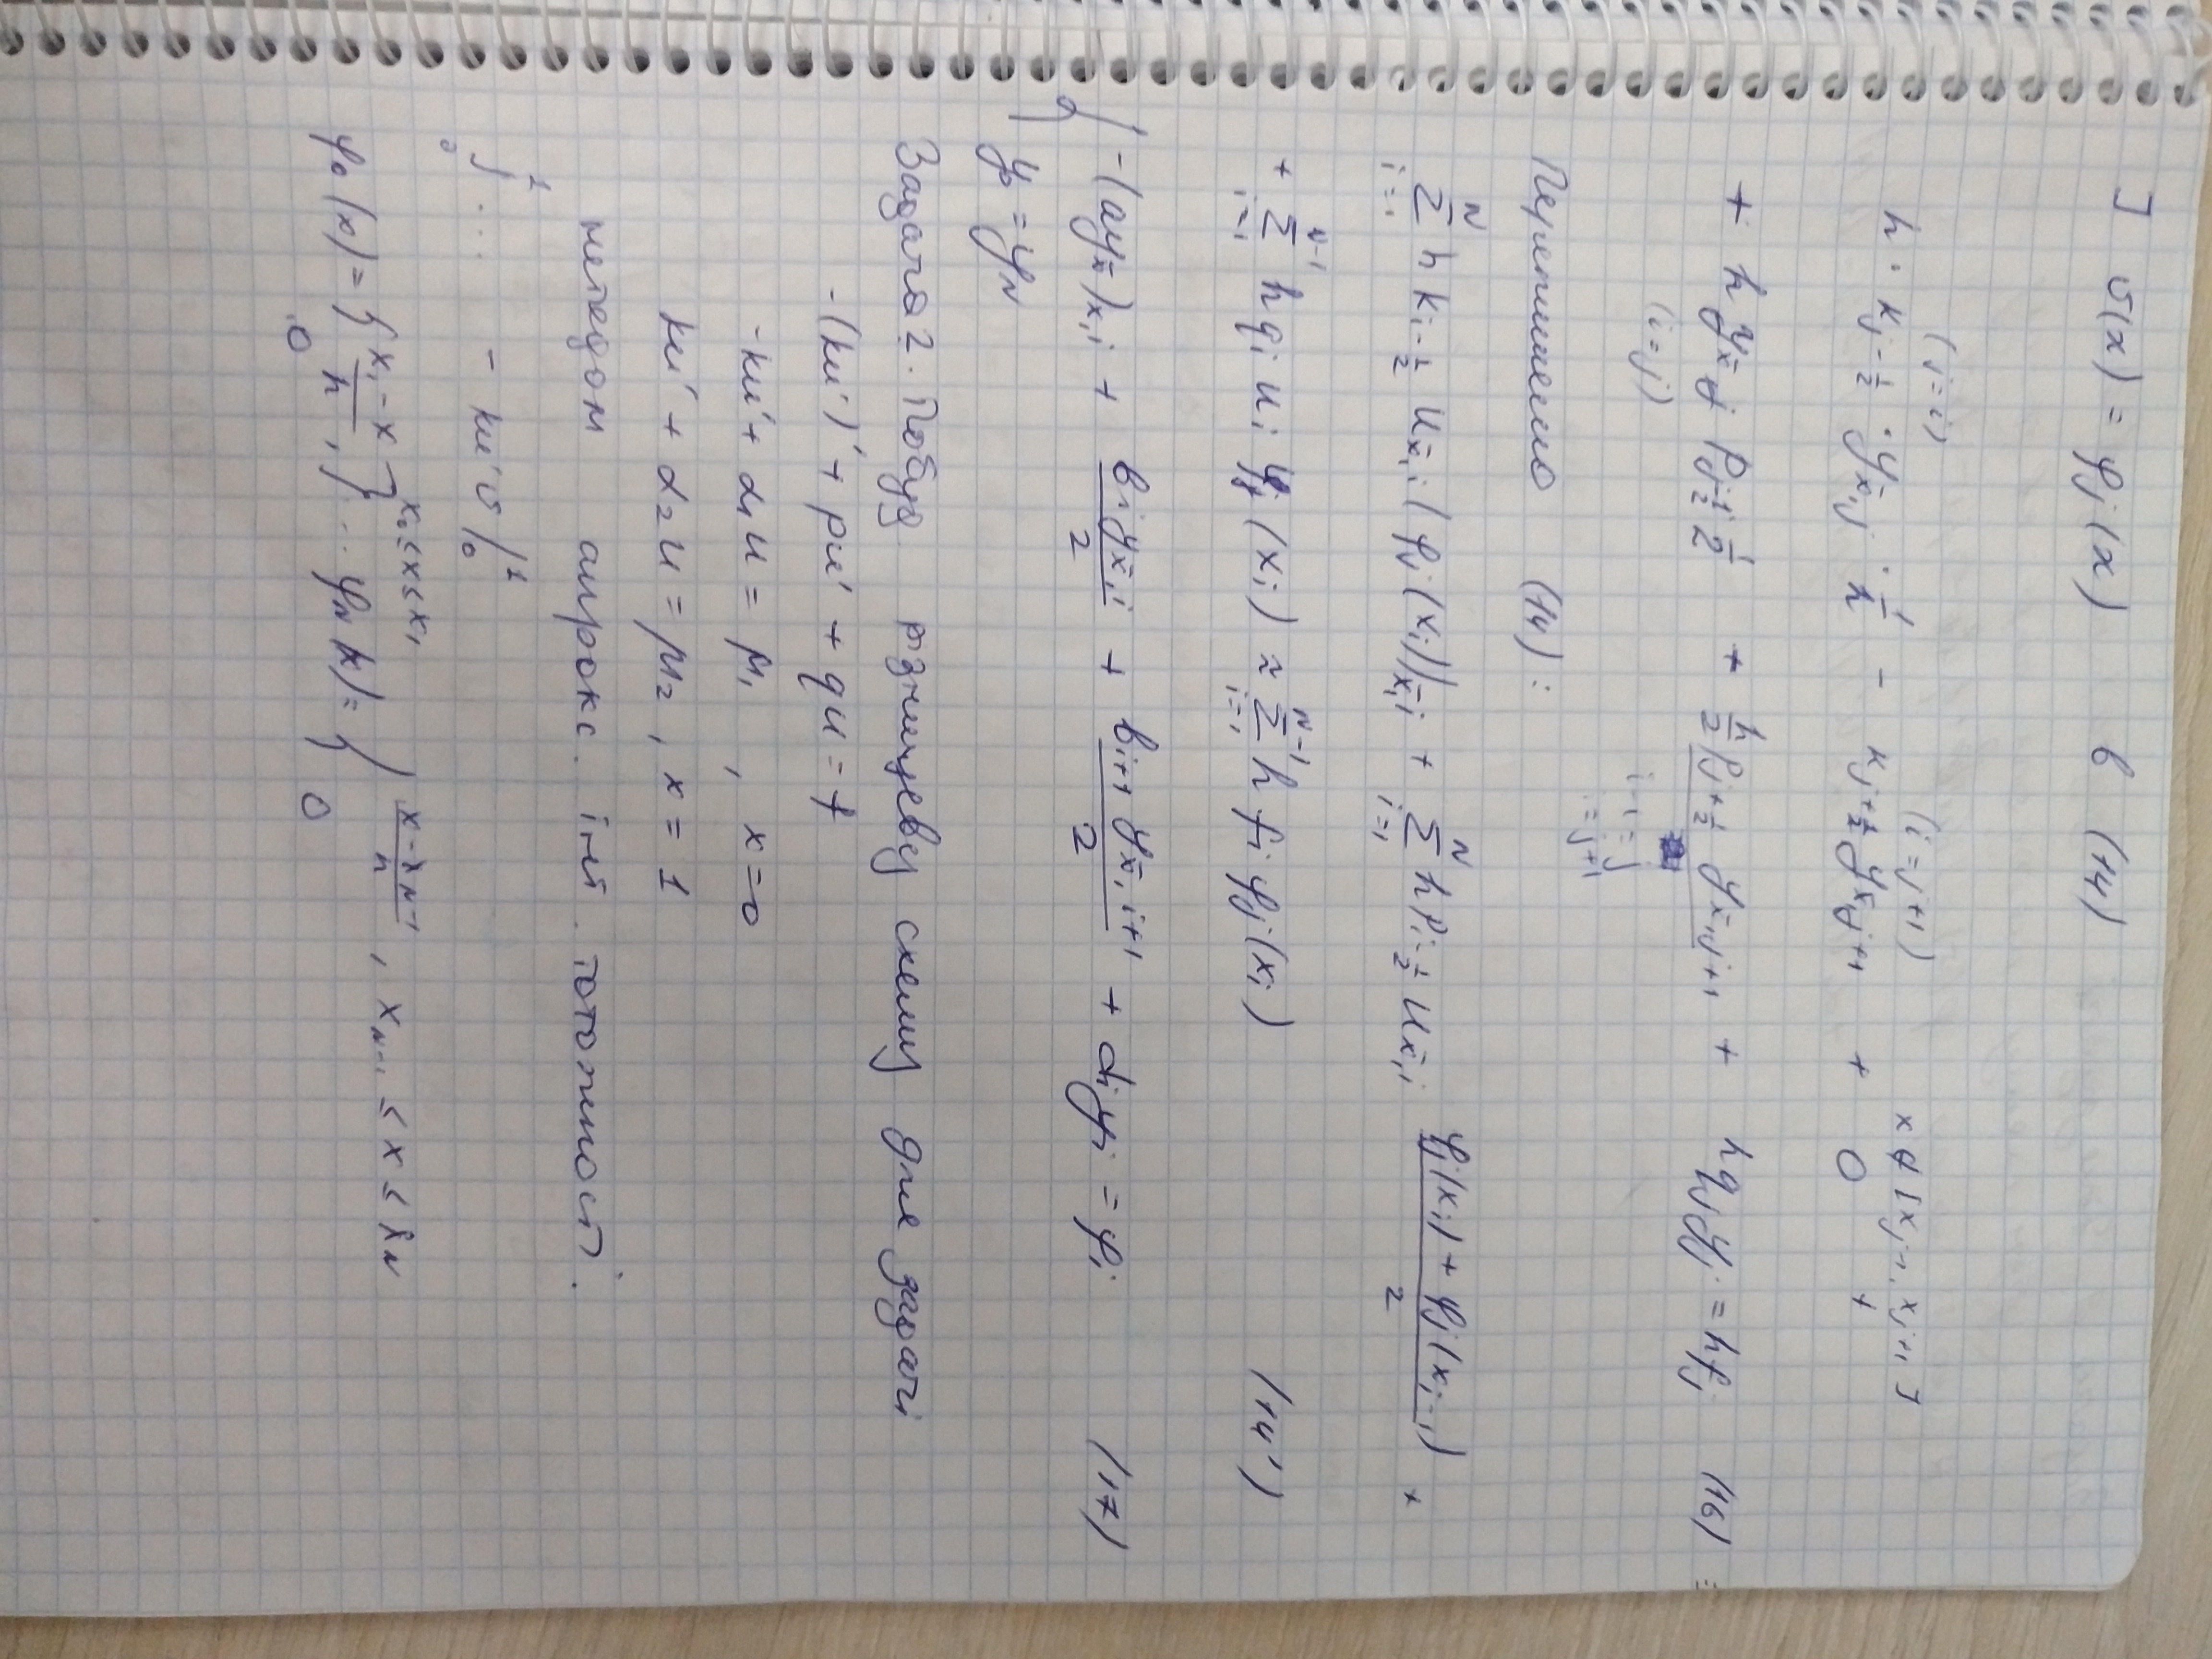 ] v(x) = φj(x) в (14)
(j=i) (i=j+1) x∉[xj-1, xj+1]
h · kj-½ · yx̄,j · 1/h - kj+½ yx̄,j+1 + 0 +
+ h yx̄,j pj-½ 1/2 + h/2 pj+½ yx̄,j+1 + h qj yj = h fj (16)
(i=j) i-1=j
i=j+1
Перепишемо (14):
∑_{i=1}^{N} h ki-½ ux̄,i (φj(xi))x̄,i + ∑_{i=1}^{N} h pi-½ ux̄,i (φj(xi) + φj(xi-1))/2 +
+ ∑_{i=1}^{N-1} h qi ui φj(xi) ≈ ∑_{i=1}^{N-1} h fi φj(xi) (14')
{ -(ayx̄)x,i + bi yx̄,i/2 + bi+1 yx̄,i+1/2 + di yi = φi (17)
y0 = yN
Задача 2. Побуд різницеву схему для задачі
-(ku')' + pu' + qu = f
-ku' + α1u = μ1, x=0
ku' + α2u = μ2, x=1
методом апрокс. інт. тотожності.
∫_0^1 ... - ku'v|_0^1
φ0(x) = { (x1-x)/h, x0≤x≤x1 } ... φN(x) = { (x-xN-1)/h, xN-1 ≤ x ≤ xN
0 0